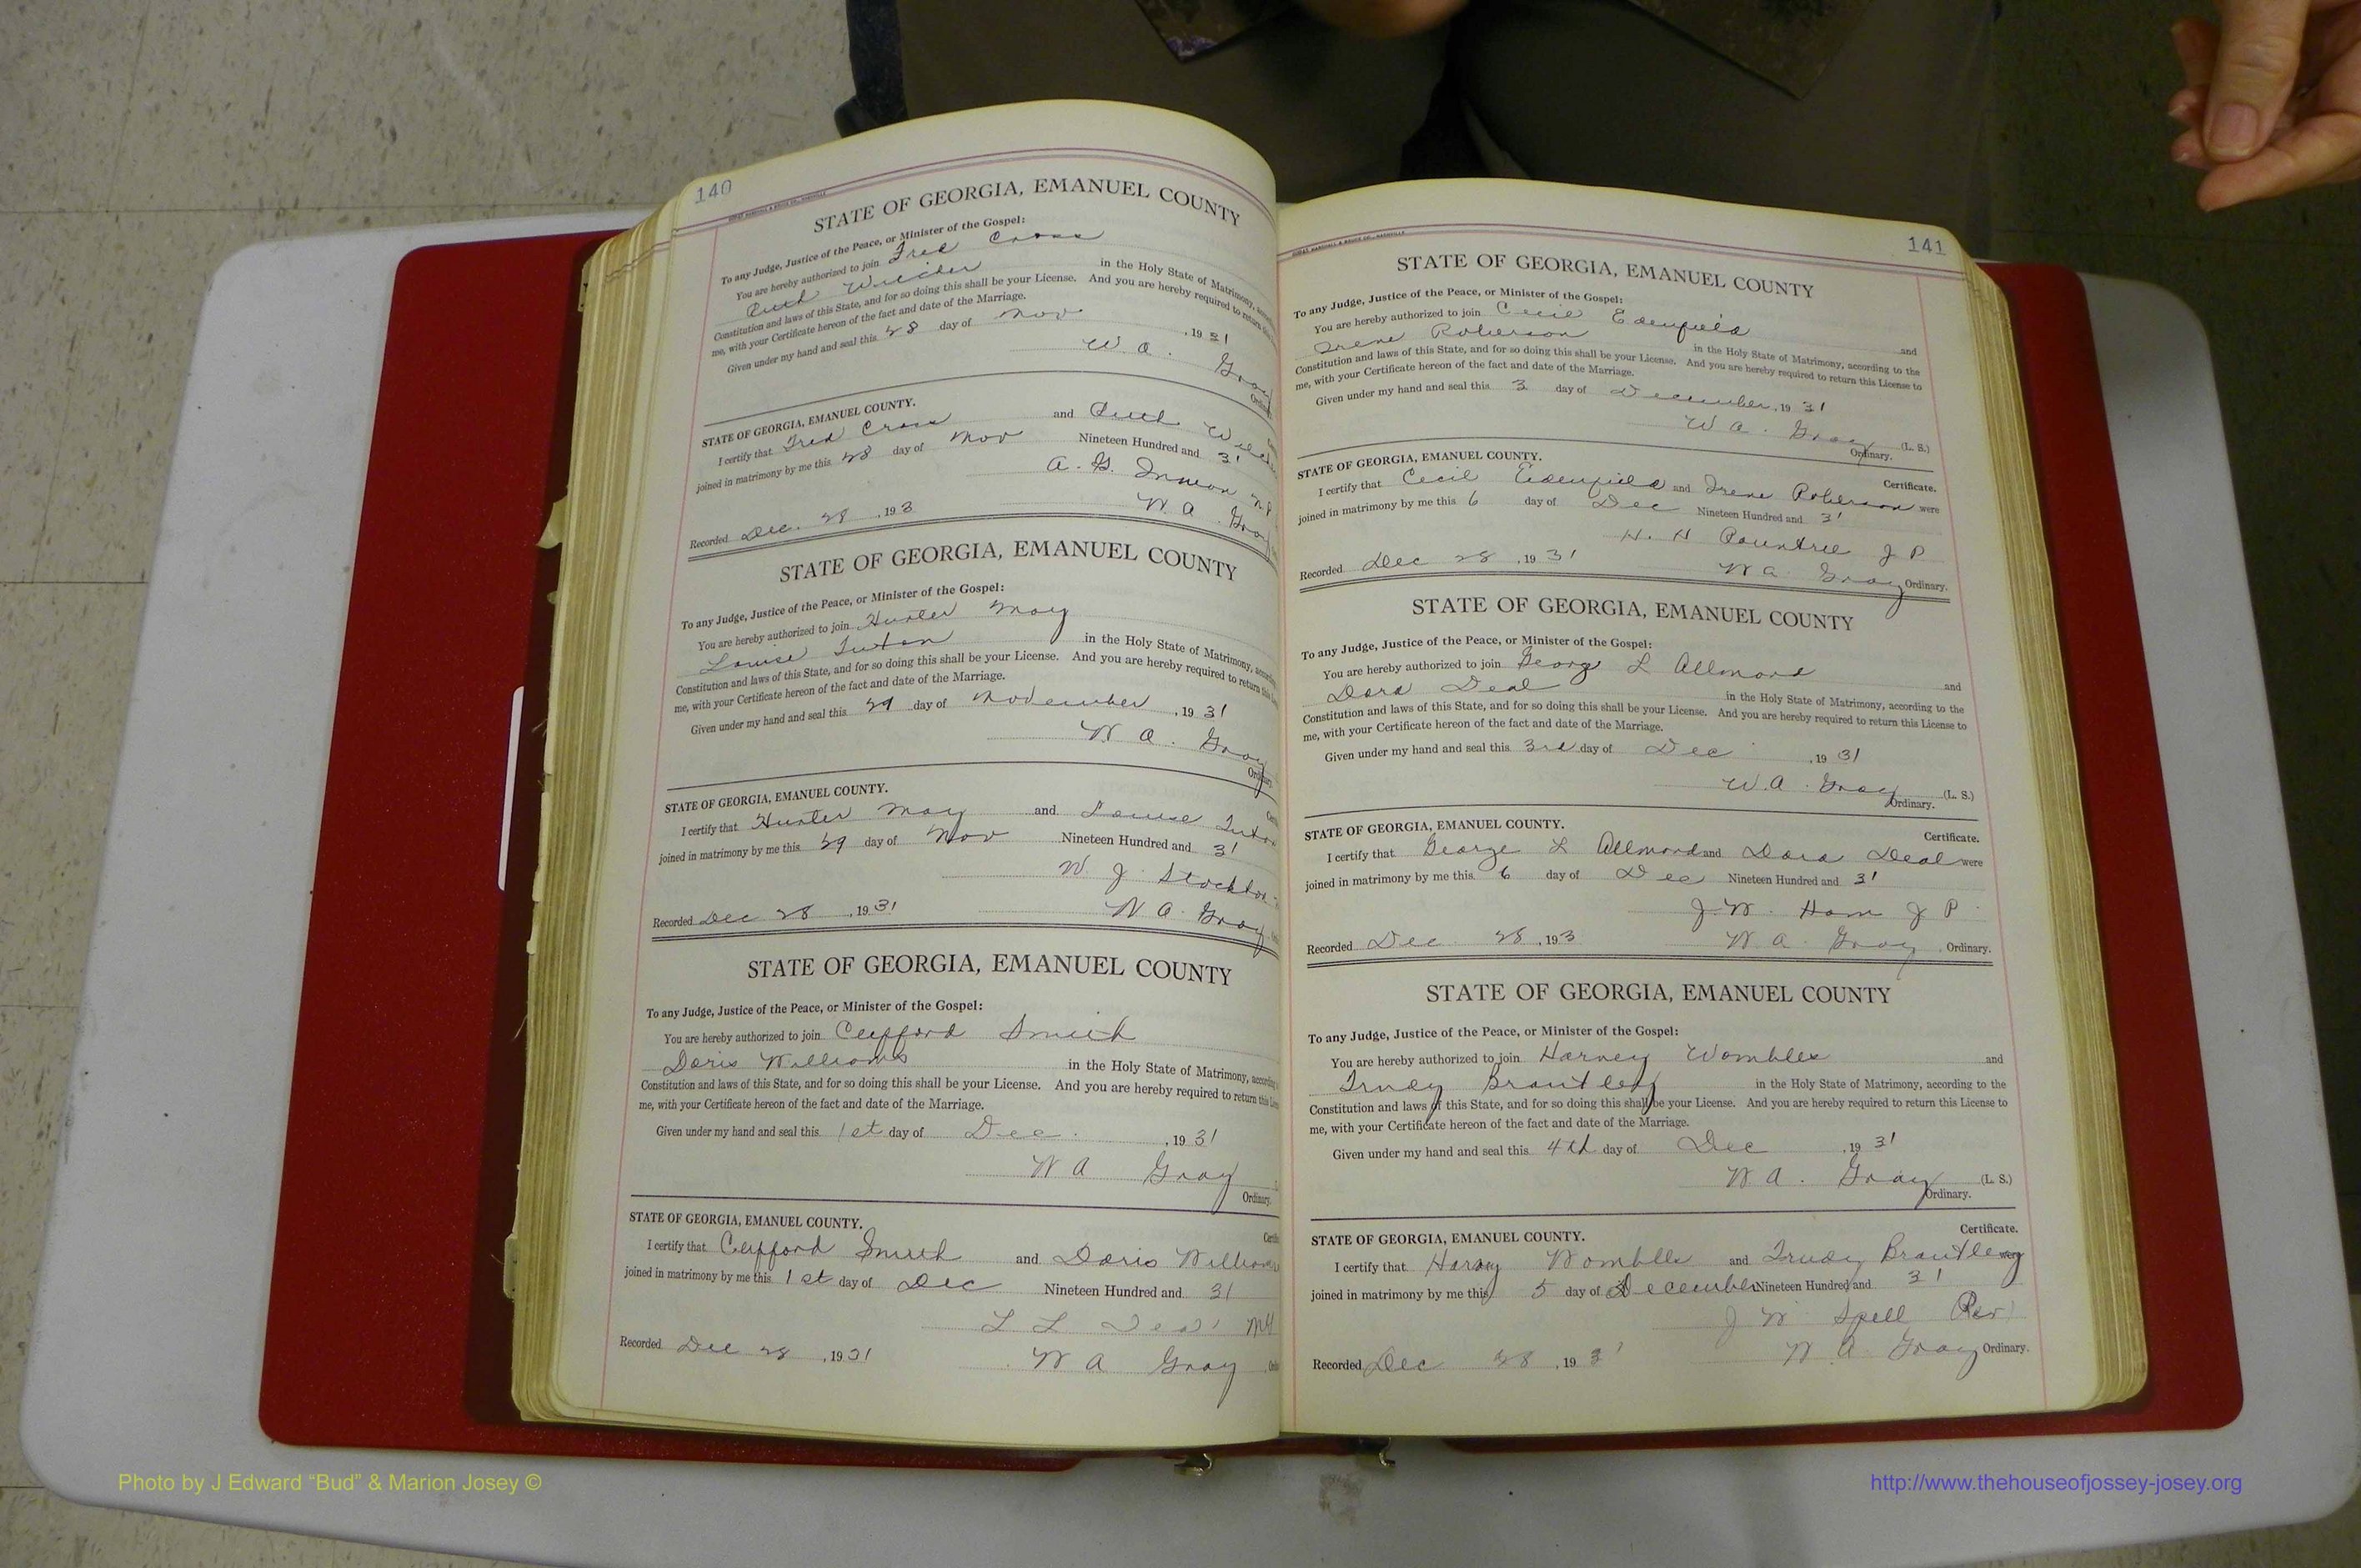 140
STATE OF GEORGIA, EMANUEL COUNTY
To any Judge, Justice of the Peace, or Minister of the Gospel:
You are hereby authorized to join Fred Cross
Ruth
in the Holy State of Matrimony,
Constitution and laws of this State, and for so doing this shall be your License. And you are hereby required to return this
me, with your Certificate hereon of the fact and date of the Marriage.
Given under my hand and seal this 28 day of Nov , 1931
W. A. Gray
STATE OF GEORGIA, EMANUEL COUNTY.
I certify that Fred Cross and Ruth
joined in matrimony by me this 28 day of Nov Nineteen Hundred and 31
A. G.
Recorded Dec. 28 , 193 W. A. Gray
STATE OF GEORGIA, EMANUEL COUNTY
To any Judge, Justice of the Peace, or Minister of the Gospel:
You are hereby authorized to join Hunter May
Louise in the Holy State of Matrimony,
Constitution and laws of this State, and for so doing this shall be your License. And you are hereby required to return this
me, with your Certificate hereon of the fact and date of the Marriage.
Given under my hand and seal this 29 day of November , 1931
W. A. Gray
STATE OF GEORGIA, EMANUEL COUNTY.
I certify that Hunter May and Louise
joined in matrimony by me this 29 day of Nov Nineteen Hundred and 31
W. J. Stockton
Recorded Dec 28 , 1931 W. A. Gray
STATE OF GEORGIA, EMANUEL COUNTY
To any Judge, Justice of the Peace, or Minister of the Gospel:
You are hereby authorized to join Clifford Smith
Doris Williams in the Holy State of Matrimony,
Constitution and laws of this State, and for so doing this shall be your License. And you are hereby required to return this
me, with your Certificate hereon of the fact and date of the Marriage.
Given under my hand and seal this 1st day of Dec. , 1931
W A Gray
Ordinary.
STATE OF GEORGIA, EMANUEL COUNTY.
I certify that Clifford Smith and Doris Williams
joined in matrimony by me this 1st day of Dec Nineteen Hundred and 31
L L
Recorded Dec 28 , 1931 W A Gray
141
STATE OF GEORGIA, EMANUEL COUNTY
To any Judge, Justice of the Peace, or Minister of the Gospel:
You are hereby authorized to join Cecil Edenfield and
Irene Roberson in the Holy State of Matrimony, according to the
Constitution and laws of this State, and for so doing this shall be your License. And you are hereby required to return this License to
me, with your Certificate hereon of the fact and date of the Marriage.
Given under my hand and seal this 3 day of December, 1931
W A. Gray (L. S.)
Ordinary.
STATE OF GEORGIA, EMANUEL COUNTY. Certificate.
I certify that Cecil Edenfield and Irene Roberson were
joined in matrimony by me this 6 day of Dec Nineteen Hundred and 31
H. H Rountree J P
Recorded Dec 28 , 1931 W A Gray Ordinary.
STATE OF GEORGIA, EMANUEL COUNTY
To any Judge, Justice of the Peace, or Minister of the Gospel:
You are hereby authorized to join George L Allmond and
Dora Deal in the Holy State of Matrimony, according to the
Constitution and laws of this State, and for so doing this shall be your License. And you are hereby required to return this License to
me, with your Certificate hereon of the fact and date of the Marriage.
Given under my hand and seal this 3rd day of Dec , 1931
W. A. Gray (L. S.)
Ordinary.
STATE OF GEORGIA, EMANUEL COUNTY. Certificate.
I certify that George L Allmond and Dora Deal were
joined in matrimony by me this 6 day of Dec Nineteen Hundred and 31
J. W. Ham J P
Recorded Dec 28 , 193 W A Gray Ordinary.
STATE OF GEORGIA, EMANUEL COUNTY
To any Judge, Justice of the Peace, or Minister of the Gospel:
You are hereby authorized to join Harvey Wombles and
Trudy Brantley in the Holy State of Matrimony, according to the
Constitution and laws of this State, and for so doing this shall be your License. And you are hereby required to return this License to
me, with your Certificate hereon of the fact and date of the Marriage.
Given under my hand and seal this 4th day of Dec , 1931
W. A. Gray (L. S.)
Ordinary.
STATE OF GEORGIA, EMANUEL COUNTY. Certificate.
I certify that Harvey Wombles and Trudy Brantley were
joined in matrimony by me this 5 day of December Nineteen Hundred and 31
J W Spell Rev
Recorded Dec 28 , 193 W A Gray Ordinary.
Photo by J Edward “Bud” & Marion Josey ©
http://www.thehouseofjossey-josey.org